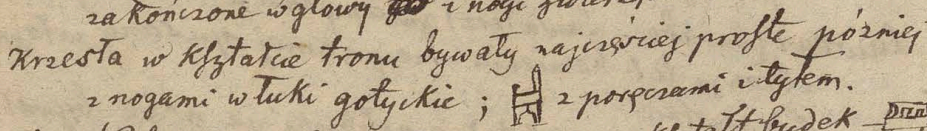 zakończone w głowy i nogi zwierz
Krzesła w kształcie tronu bywały najczęściej proste później
z nogami w łuki gotyckie ; z poręczami i tyłem.
budek